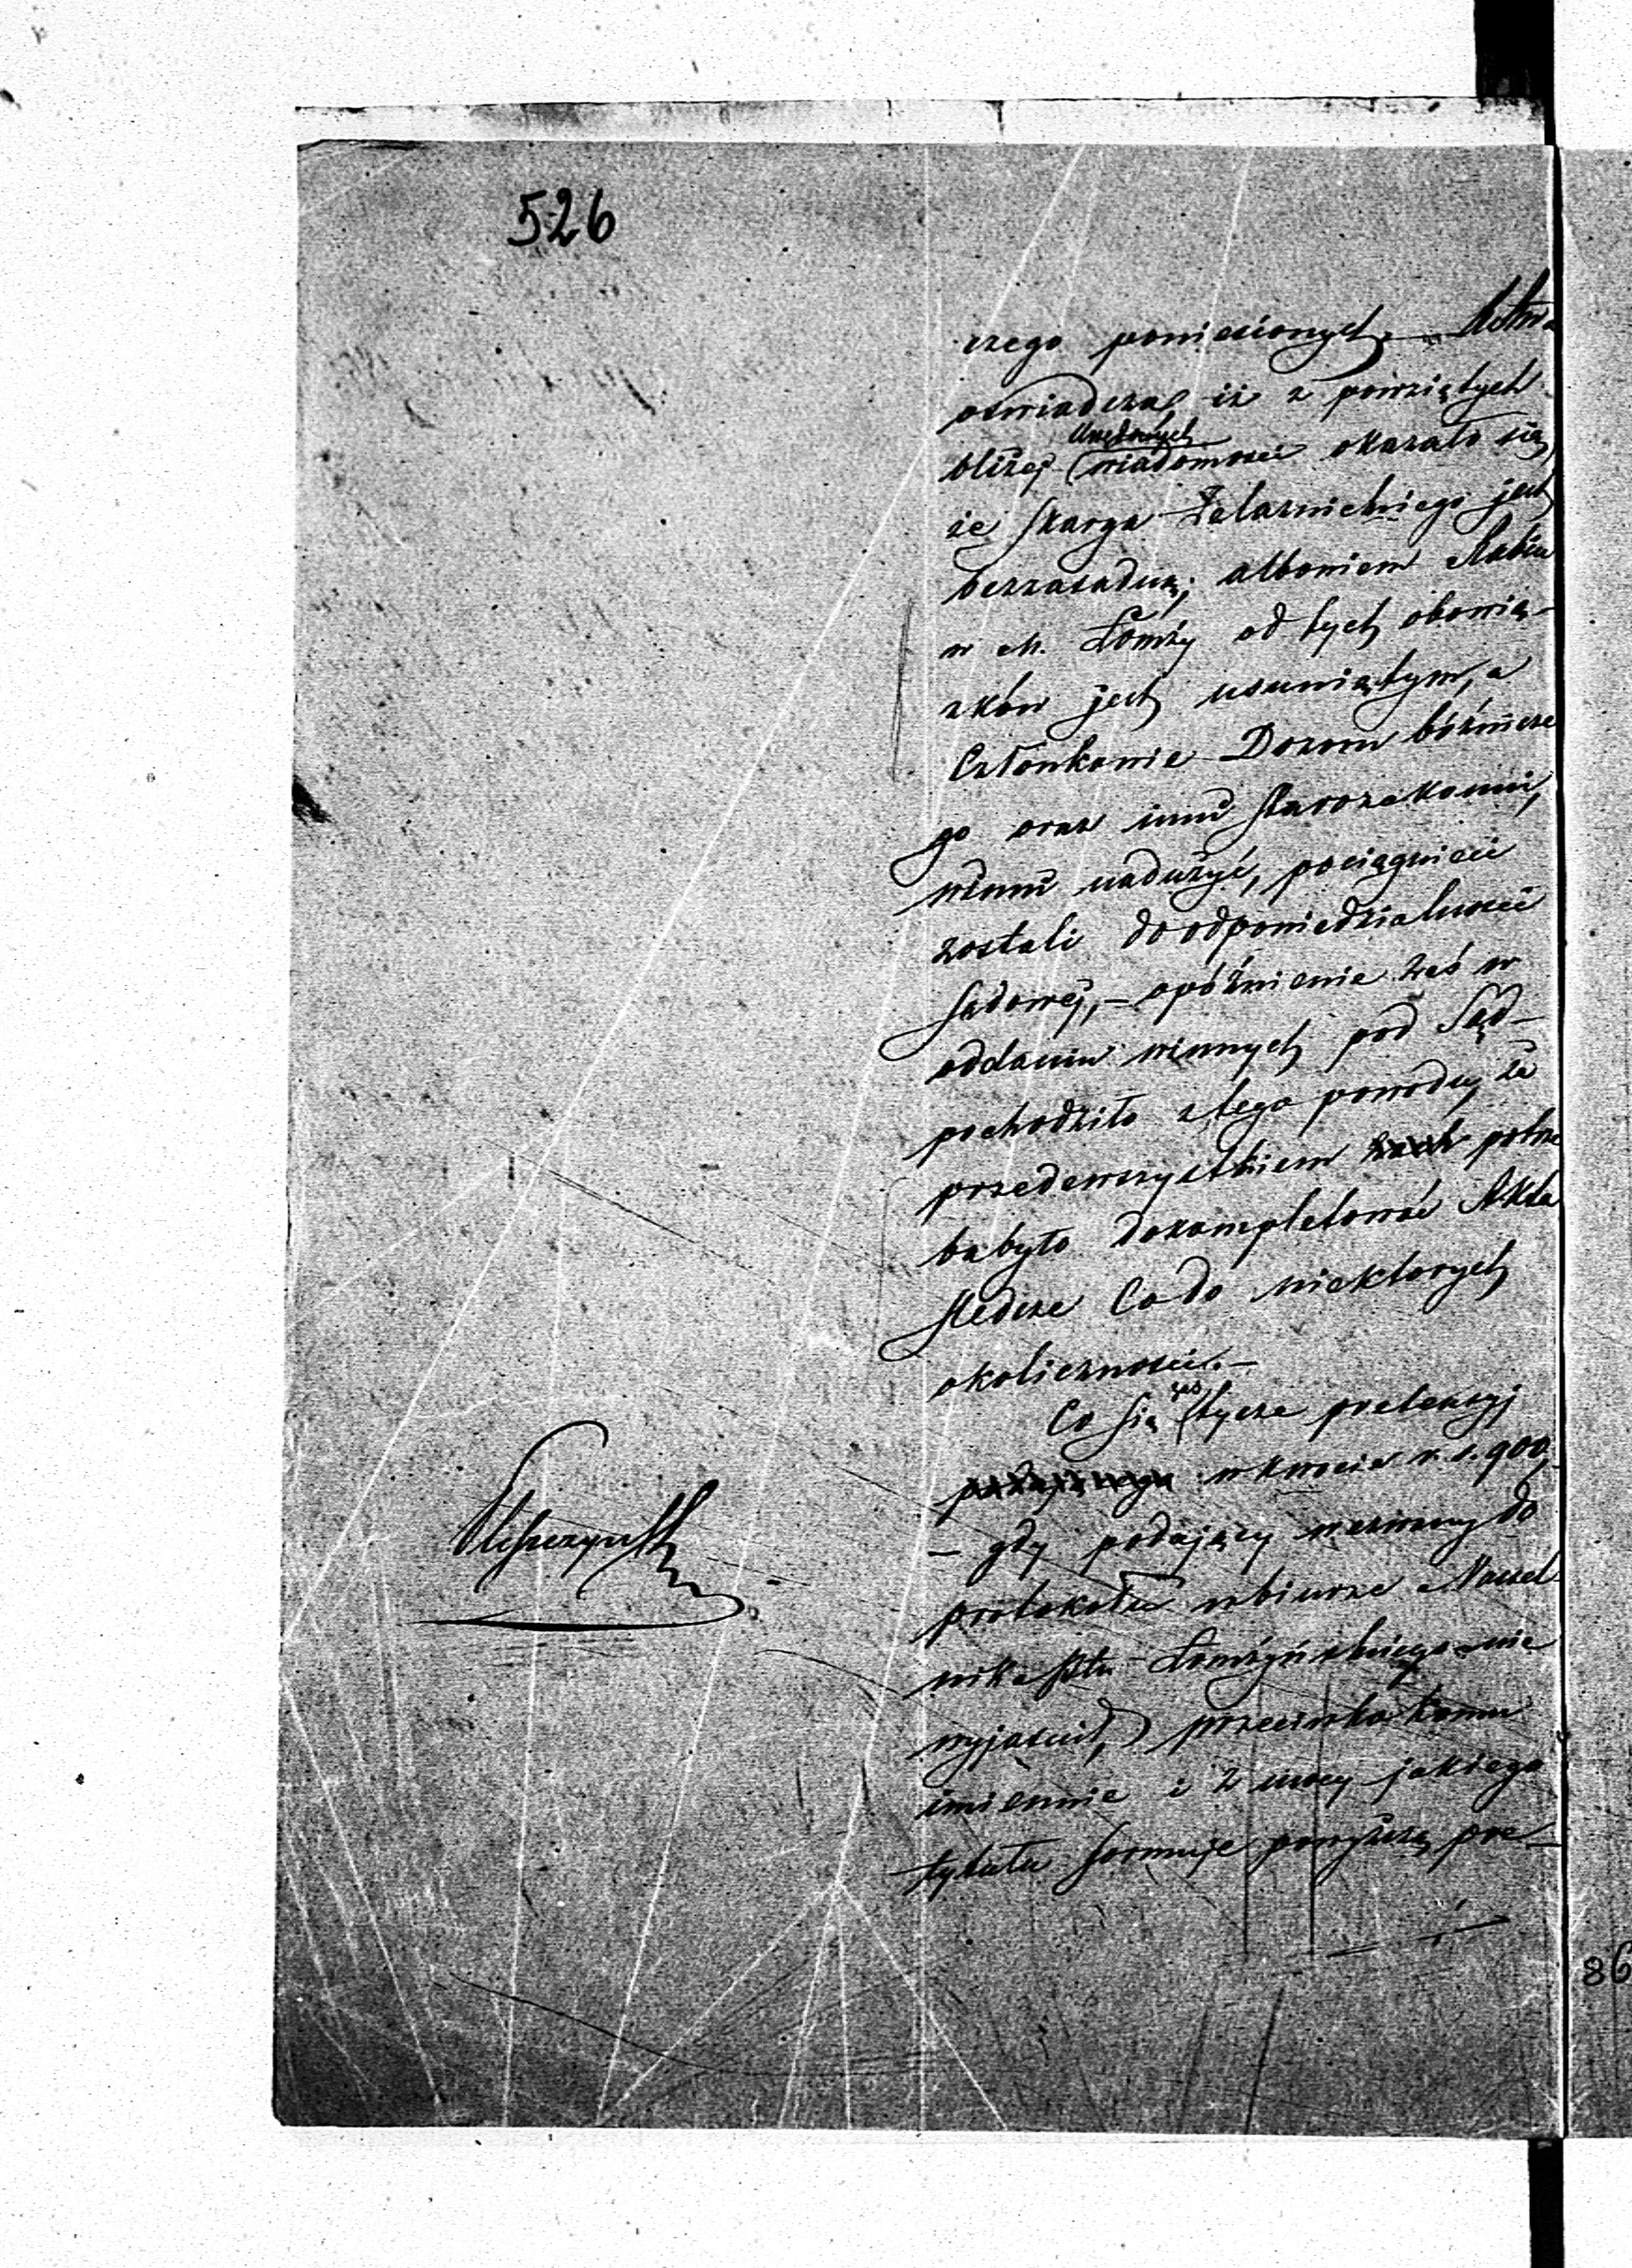 526
czego poniesionych. —
oświadczał iż z powziętych
Urzędowych
bliżej wiadomości okazało się
że skarga Żelaznickiego jest
bezzasadną; albowiem Rabin
w M. Łomży od tych obowią-
zków jest usuniętym, a
Członkowie Dozoru bóżnicze
go oraz inni starozakonni,
winni nadużyć, pociągnieci
zostali do odpowiedzialności
Sądowej, — opóźnienie zaś w
oddaniu winnych pod Sąd —
pochodziło z tego powodu, że
przedewszystkiem potrze
ba było dokompletować Akta
śledcze Co do niektorych
okoliczności. —
zaś
Co się tycze pretensyj
w kwocie r. s. 900,
— gdy podający wezwany do
protokołu w biurze Naczel
nika Pttu Łomżyńskiego nie
wyjaśnił, przeciwko komu
imiennie i z mocy jakiego
tytułu formuje powyższą pre—
86